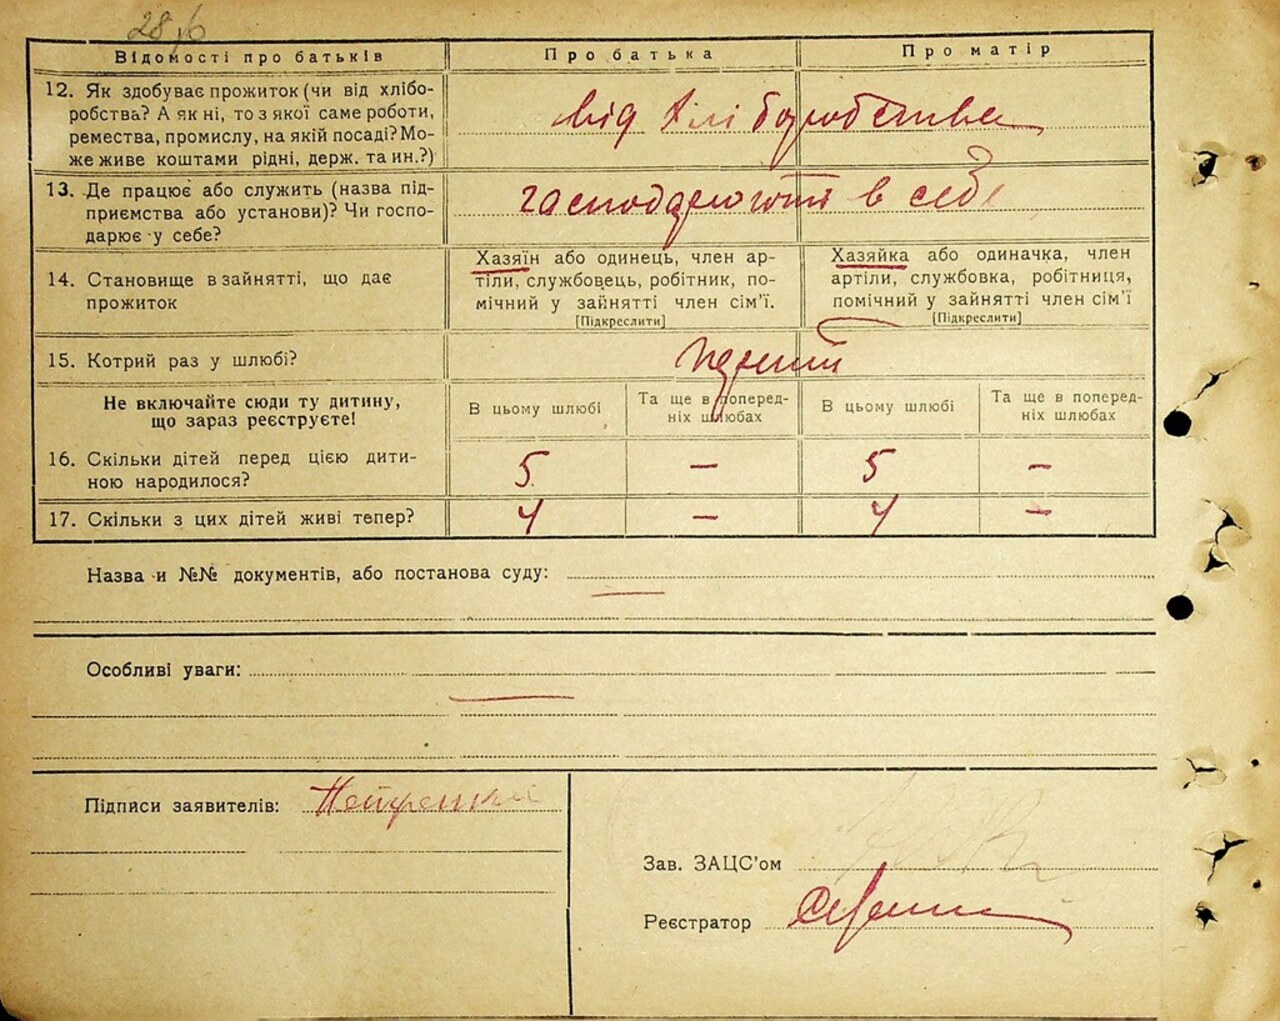 28
Відомості про батьків
Про батька
Про матір
12. Як здобуває прожиток (чи від хлібо-
робства? А як ні, то з якої саме роботи,
ремества, промислу, на якій посаді? Мо-
же живе коштами рідні, держ. та ин.?)
від хліборобства
13. Де працює або служить (назва під-
приємства або установи)? Чи госпо-
дарює у себе?
господарюють в себе
14. Становище в зайнятті, що дає
прожиток
Хазяїн або одинець, член ар-
тіли, службовець, робітник, по-
мічний у зайнятті член сім'ї.
[Підкреслити]
Хазяйка або одиначка, член
артіли, службовка, робітниця,
помічний у зайнятті член сім'ї
[Підкреслити]
15. Котрий раз у шлюбі?
Не включайте сюди ту дитину,
що зараз реєструєте!
В цьому шлюбі
Та ще в поперед-
ніх шлюбах
В цьому шлюбі
Та ще в поперед-
ніх шлюбах
16. Скільки дітей перед цією дити-
ною народилося?
5 — 5 —
17. Скільки з цих дітей живі тепер?
4 — 4 —
Назва и №№ документів, або постанова суду: —
Особливі уваги: —
Підписи заявителів:
Зав. ЗАЦС'ом
Реєстратор